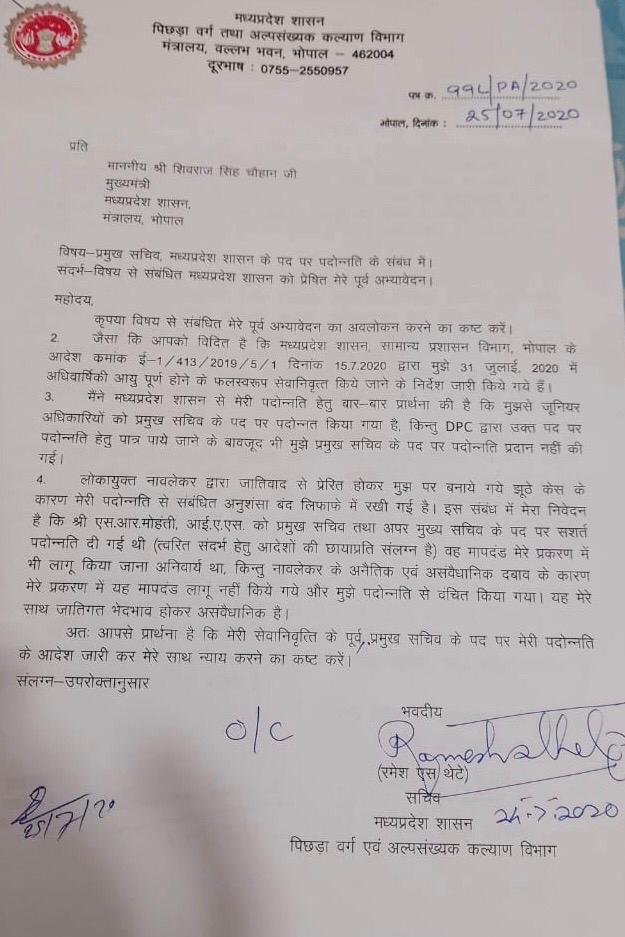 मध्यप्रदेश शासन
पिछड़ा वर्ग तथा अल्पसंख्यक कल्याण विभाग
मंत्रालय, वल्लभ भवन, भोपाल – 462004
दूरभाष : 0755–2550957
पत्र क्र. 992/PA/2020
भोपाल, दिनांक : 25/07/2020
प्रति
माननीय श्री शिवराज सिंह चौहान जी
मुख्यमंत्री
मध्यप्रदेश शासन,
मंत्रालय, भोपाल
विषय–प्रमुख सचिव, मध्यप्रदेश शासन के पद पर पदोन्नति के संबंध में।
संदर्भ–विषय से संबंधित मध्यप्रदेश शासन को प्रेषित मेरे पूर्व अभ्यावेदन।
महोदय,
कृपया विषय से संबंधित मेरे पूर्व अभ्यावेदन का अवलोकन करने का कष्ट करें।
2. जैसा कि आपको विदित है कि मध्यप्रदेश शासन, सामान्य प्रशासन विभाग, भोपाल के
आदेश कमांक ई–1/413/2019/5/1 दिनांक 15.7.2020 द्वारा मुझे 31 जुलाई, 2020 में
अधिवार्षिकी आयु पूर्ण होने के फलस्वरूप सेवानिवृत्त किये जाने के निर्देश जारी किये गये हैं।
3. मैंने मध्यप्रदेश शासन से मेरी पदोन्नति हेतु बार–बार प्रार्थना की है कि मुझसे जूनियर
अधिकारियों को प्रमुख सचिव के पद पर पदोन्नत किया गया है, किन्तु DPC द्वारा उक्त पद पर
पदोन्नति हेतु पात्र पाये जाने के बावजूद भी मुझे प्रमुख सचिव के पद पर पदोन्नति प्रदान नहीं की
गई।
4. लोकायुक्त नावलेकर द्वारा जातिवाद से प्रेरित होकर मुझ पर बनाये गये झूठे केस के
कारण मेरी पदोन्नति से संबंधित अनुशंसा बंद लिफाफे में रखी गई है। इस संबंध में मेरा निवेदन
है कि श्री एस.आर.मोहंती, आई.ए.एस. को प्रमुख सचिव तथा अपर मुख्य सचिव के पद पर सशर्त
पदोन्नति दी गई थी (त्वरित संदर्भ हेतु आदेशों की छायाप्रति संलग्न है) वह मापदंड मेरे प्रकरण में
भी लागू किया जाना अनिवार्य था, किन्तु नावलेकर के अनैतिक एवं असंवैधानिक दबाव के कारण
मेरे प्रकरण में यह मापदंड लागू नहीं किये गये और मुझे पदोन्नति से वंचित किया गया। यह मेरे
साथ जातिगत भेदभाव होकर असंवैधानिक है।
अतः आपसे प्रार्थना है कि मेरी सेवानिवृत्ति के पूर्व, प्रमुख सचिव के पद पर मेरी पदोन्नति
के आदेश जारी कर मेरे साथ न्याय करने का कष्ट करें।
संलग्न–उपरोक्तानुसार
भवदीय
O/C
(रमेश एस थेटे)
सचिव
मध्यप्रदेश शासन
पिछड़ा वर्ग एवं अल्पसंख्यक कल्याण विभाग
25/7/20